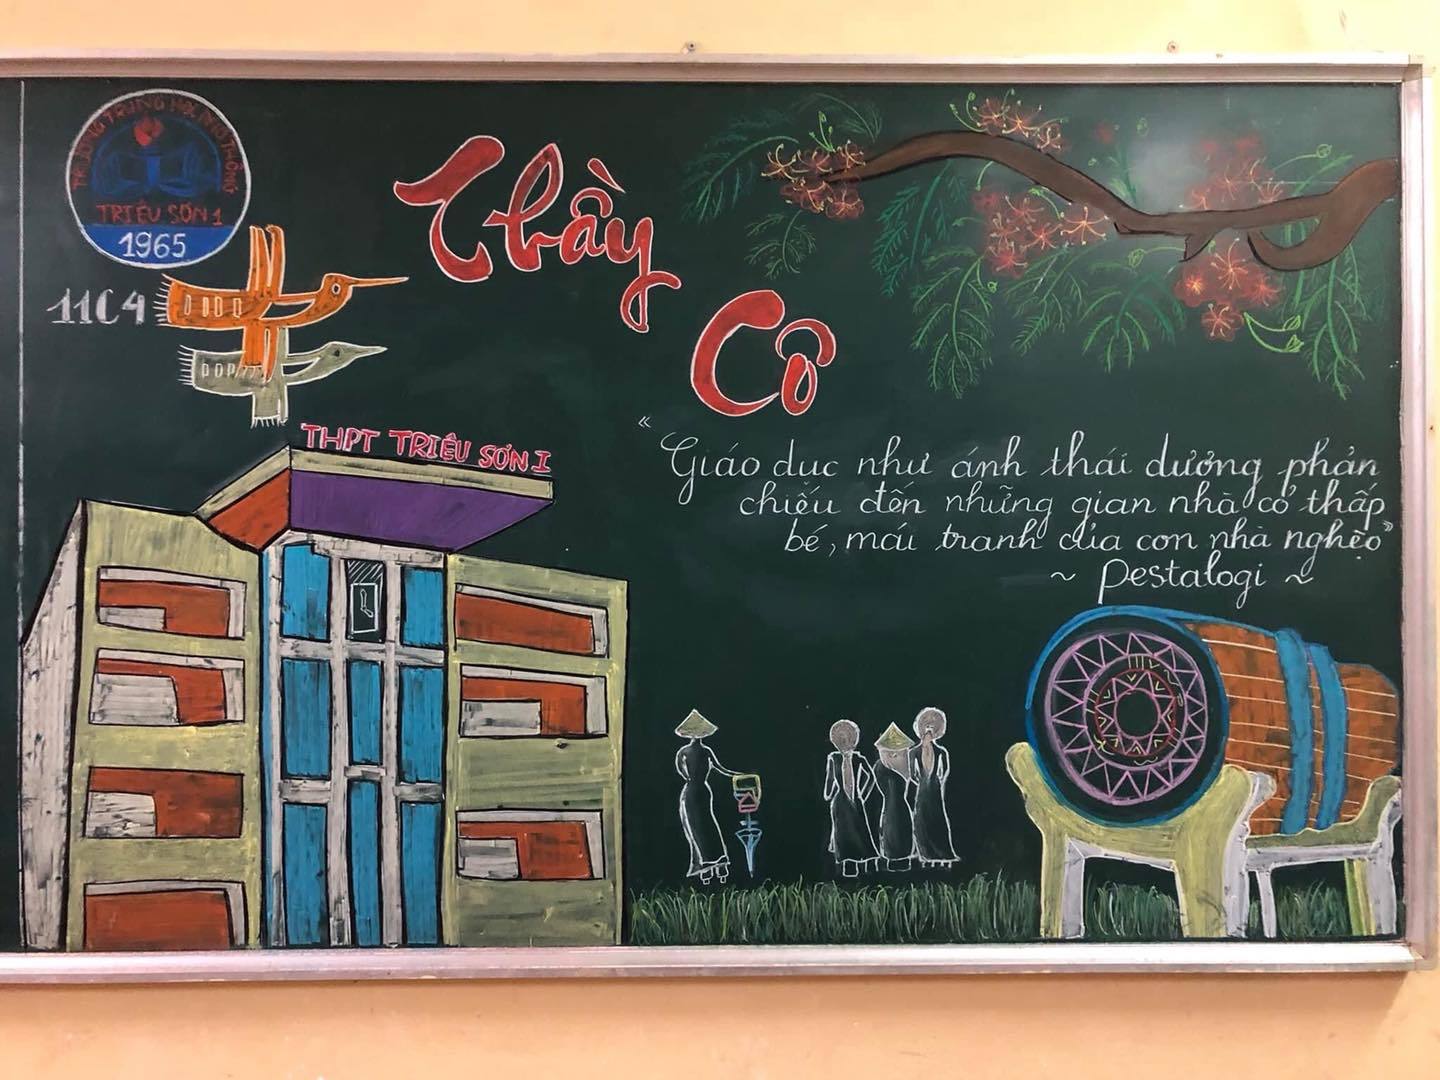 TRƯỜNG TRUNG HỌC PHỔ THÔNG
TRIỆU SƠN 1
1965
11C4
Thầy
Cô
THPT TRIỆU SƠN I
"Giáo dục như ánh thái dương phản
chiếu đến những gian nhà cỏ thấp
bé, mái tranh của con nhà nghèo"
~ Pestalogi ~